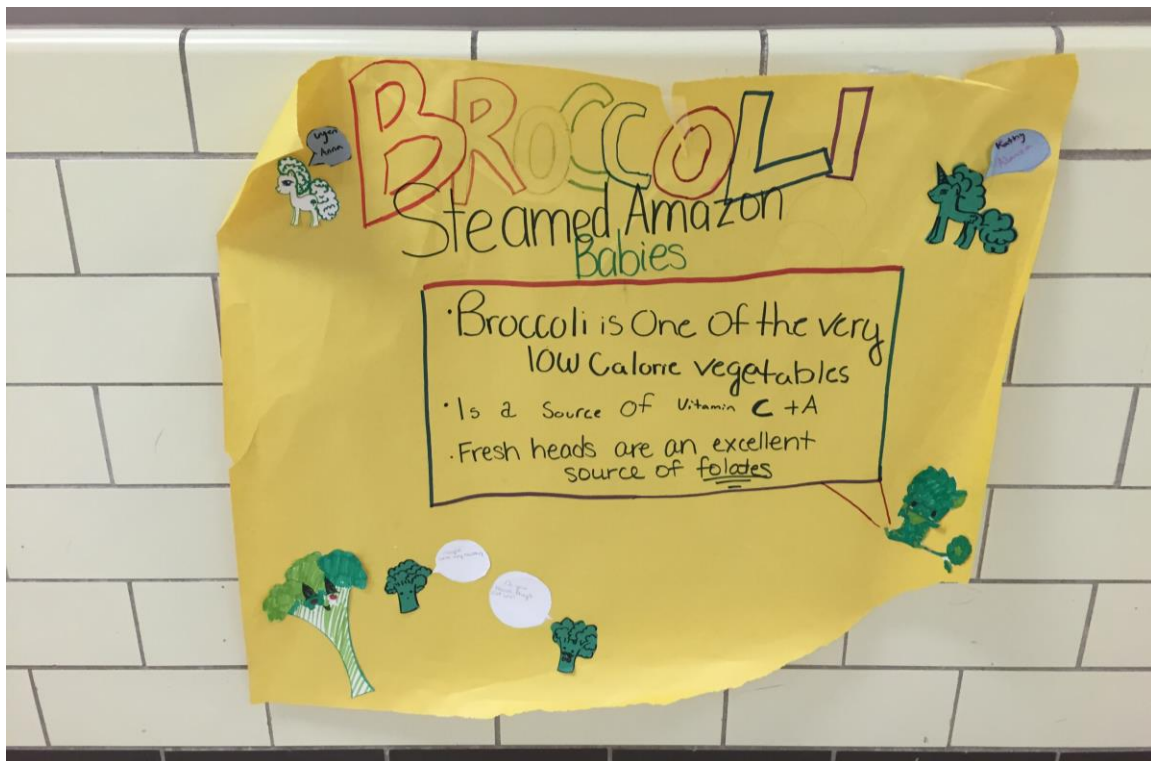 BROCCOLI
Steamed Amazon
Babies
Anna
Kathy
· Broccoli is One Of the very
low Calorie vegetables
· Is a Source of Vitamin C + A
· Fresh heads are an excellent
source of folates